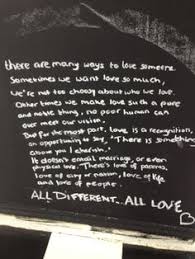 there are many ways to love someone.
Sometimes we want love so much,
we're not too choosy about who we love.
Other times we make love such a pure
and noble thing, no poor human can
ever meet our vision.
But for the most part, love is a recognition,
an opportunity to say, "There is something
about you I cherish."
It doesn't entail marriage, or even
physical love. There's love of parents,
love of city or nation, love of life,
and love of people.
ALL DIFFERENT...ALL LOVE